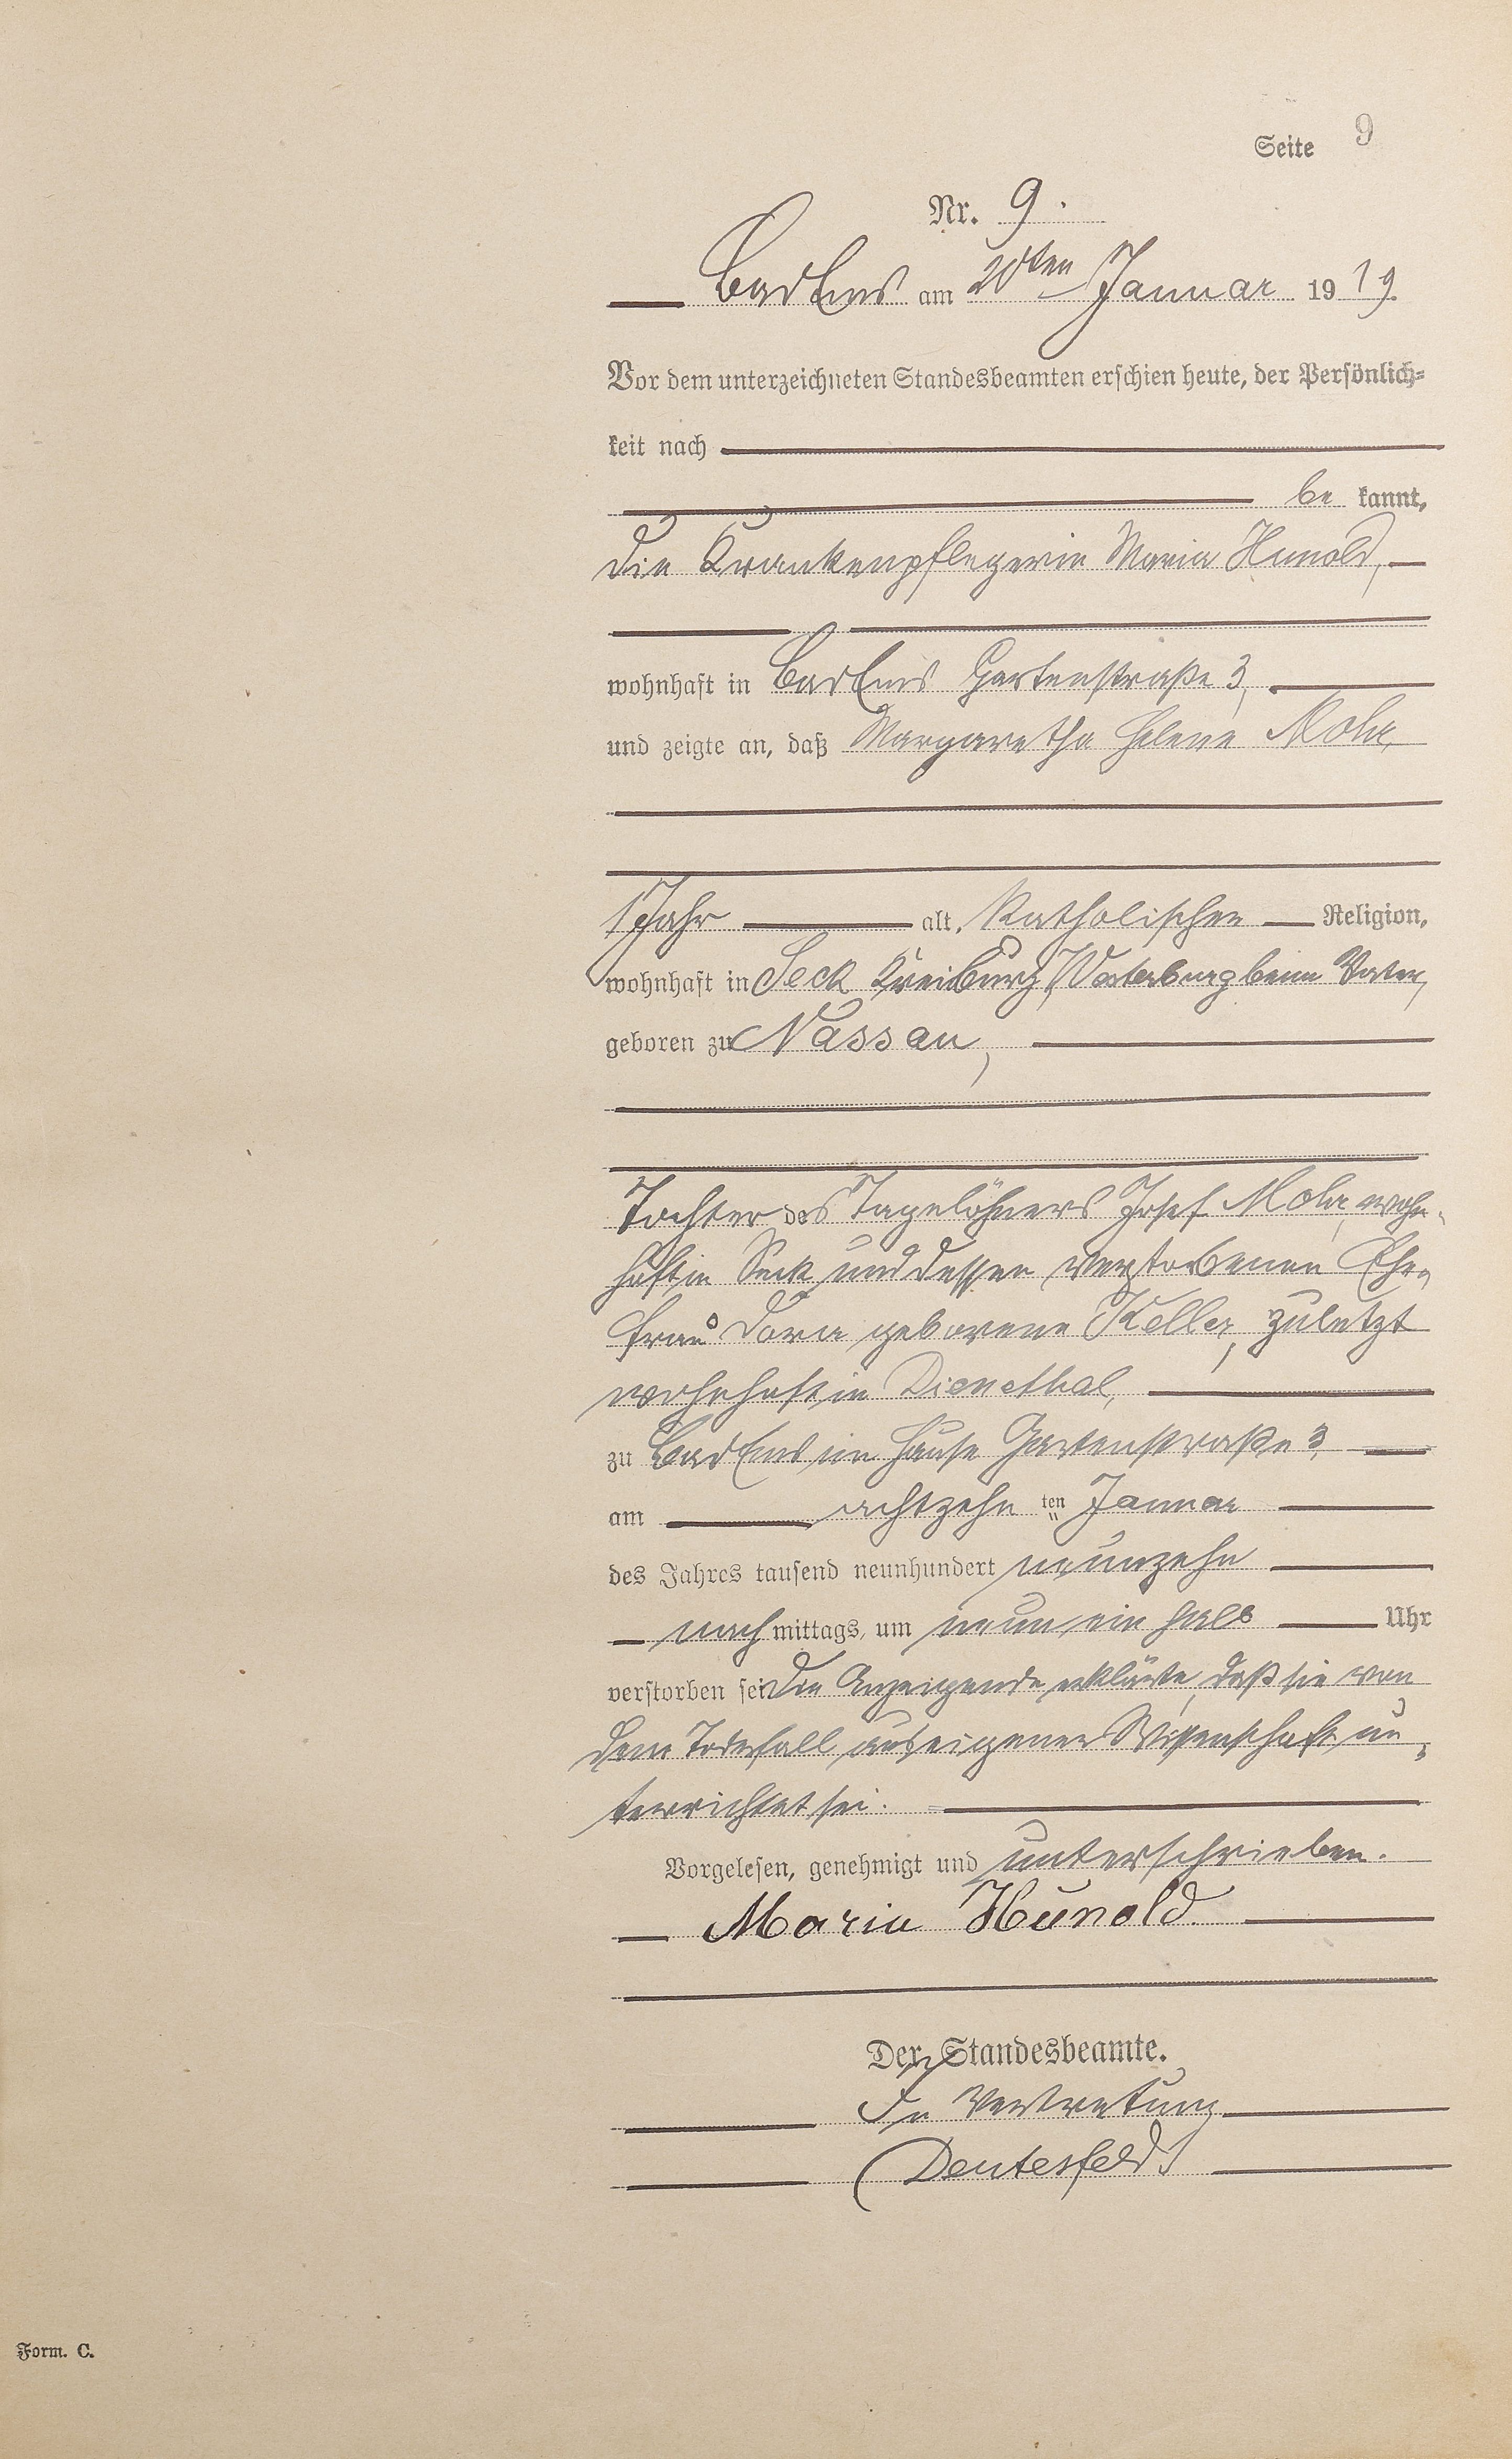 Seite 9
Nr. 9.
Bad Ems am 20ten Januar 1919.
Vor dem unterzeichneten Standesbeamten erschien heute, der Persönlich-
keit nach
be kannt,
die Krankenpflegerin Maria Hunold,
wohnhaft in Bad Ems Gartenstraße 3,
und zeigte an, daß Margaretha Helene Mohr,
1 Jahr alt, Katholischer Religion,
wohnhaft in Seck beim Vater,
geboren zu Nassau,
Tochter des Tagelöhners Josef Mohr, wohn-
haft in Seck und dessen verstorbenen Ehe-
frau Dora geborene Keller, zuletzt
wohnhaft in Dienethal,
zu Bad Ems im Hause Gartenstraße 3,
am achtzehn ten Januar
des Jahres tausend neunhundert neunzehn
nach mittags, um neun ein halb Uhr
verstorben sei. Die Anzeigende erklärte, daß sie von
dem Todesfall aus eigener Wissenschaft un-
terrichtet sei.
Vorgelesen, genehmigt und unterschrieben.
Maria Hunold.
Der Standesbeamte.
In Vertretung
Form. C.